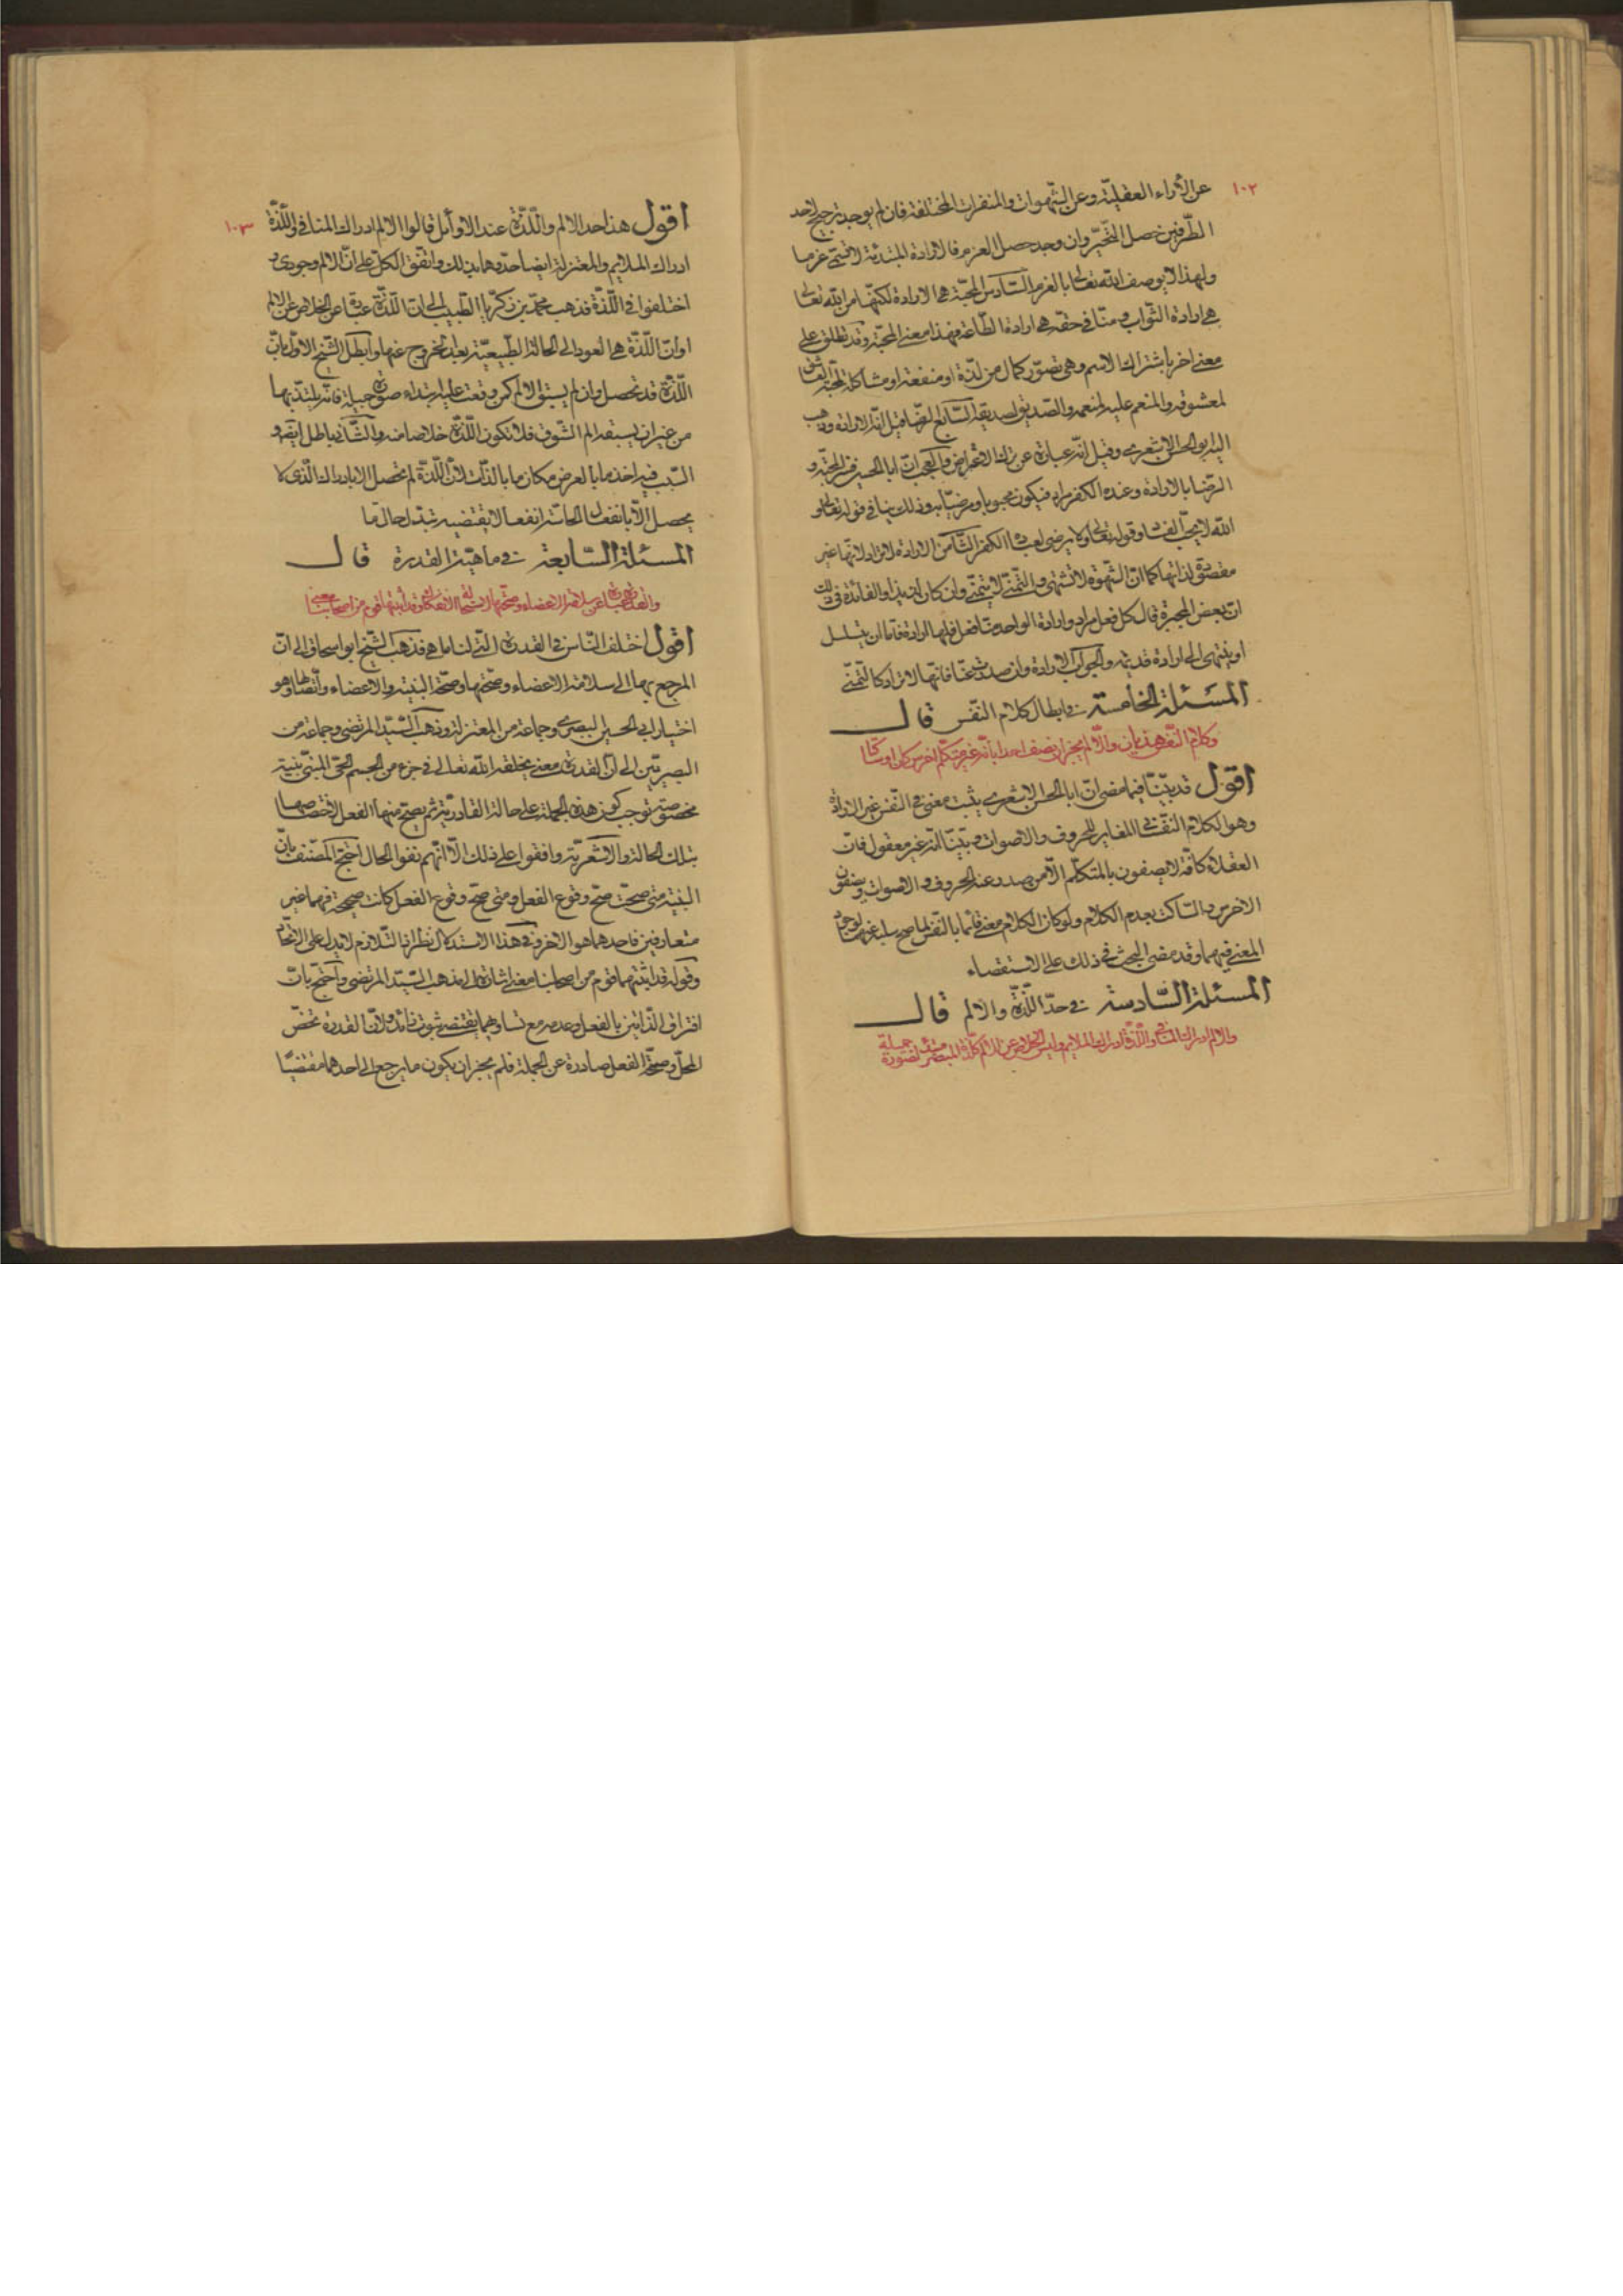 ١٠٢
عن الأراء العقليّة وعن الشّهوات والمنفرات المختلفة فان لم يوجد ترجيح لاحد
الطّرفين حصل التّحيّر وان وجد حصل العزم فالارادة المبتدئة لا تسمّى عزما
ولهذا لا يوصف الله تعالى بالعزم السّادس المحبّة هى الارادة لكنّها من الله تعالى
هى ارادة الثّواب ومنّا فى حقّه هى ارادة الطّاعة فهذا معنى المحبّة وقد تطلق على
معنى اخر باشتراك الاسم وهى تصوّر كمال من لذّة او منفعة او مشاكلة كمحبّة العاشق
لمعشوقه والمنعم عليه لمنعمه والصّديق لصديقه السّابع الرّضا قيل انّه الارادة وذهب
اليه ابو الحسن الاشعرى وقيل انّه عبارة عن ترك الاعتراض والعجب انّ ابا الحسن فسّر المحبّة و
الرّضا بالارادة وعنده الكفر مراد فيكون محبوبا ومرضيّا به وذلك ينافى قوله تعالى و
الله لا يحبّ الفساد وقوله تعالى ولا يرضى لعباده الكفر الثّامن الارادة لا تراد لانّها غير
مقصودة لذاتها كما انّ الشّهوة لا تشتهى والتّمنّى لا يتمنّى وان كان لذيذا والفائدة فى ذلك
انّ بعض المجبرة قال كلّ فعل مراد وارادة الواحد منّا فعل فلها ارادة فامّا ان يتسلسل
او ينتهى الى ارادة قديمة والجواب الارادة وان صدرت عنّا فانّها لا تراد كالتّمنّى
المسئلة الخامسة فى ابطال كلام النّفس قال
وكلام النّفس هذيان والّا لم يجز ان نصف احدا بانّه غير متكلّم اخرس كان او ساكتا
اقول قد بيّنّا فيما مضى انّ ابا الحسن الاشعرى يثبت معنى فى النّفس غير الارادة
وهو الكلام النّفسى المغاير للحروف والاصوات وبيّنّا انّه غير معقول فانّ
العقلاء كافّة لا يصفون بالمتكلّم الّا من صدر عنه الحروف والاصوات ويصفون
الاخرس والسّاكت بعدم الكلام ولو كان الكلام معنى قائما بالنّفس لما صحّ سلبه عنهما لوجود
المعنى فيهما وقد مضى البحث فى ذلك على الاستقصاء
المسئلة السّادسة فى حدّ اللّذّة والالم قال
والالم ادراك المنافى واللّذّة ادراك الملايم وليس الخلاص عن الالم كلذّة المبصر لصورة جميلة
١٠٣
اقول هذا حدّ الالم واللّذّة عند الاوائل قالوا الالم ادراك المنافى واللّذّة
ادراك الملايم والمعتزلة ايضا حدّوهما بذلك واتّفق الكلّ على انّ الالم وجودى و
اختلفوا فى اللّذّة فذهب محمّد بن زكريّا الطّبيب الى انّ اللّذّة عبارة عن الخلاص عن الالم
او انّ اللّذّة هى العود الى الحالة الطّبيعيّة بعد الخروج عنها وابطل الشّيخ الاوّل بانّ
اللّذّة قد تحصل وان لم يسبق الالم كمن وقعت عليه ابتداء صورة جميلة فانّه يلتذّ بها
من غير ان يسبقه الم الشّوق فلا تكون اللّذّة خلاصا منه والثّانى باطل ايضا و
السّبب فيه اخذ ما بالعرض مكان ما بالذّات لانّ اللّذّة لم تحصل الا بادراك الّذى لا
يحصل الّا بانفعال الحاسّة انفعالا يقتضيه تبدّل حال ما
المسئلة السّابعة فى ماهيّة القدرة قال
والقدرة عبارة عن سلامة الاعضاء وصحّتها لاستحالة الانفكاك وقد اثبتها قوم من اصحابنا معنى
اقول اختلف النّاس فى القدرة الّتى لنا ما هى فذهب الشّيخ ابو اسحاق الى انّ
المرجع بها الى سلامة الاعضاء وصحّتها وصحّة البنية والاعضاء واتّصالها وهو
اختيار ابى الحسين البصرى وجماعة من المعتزلة وذهب السّيّد المرتضى وجماعة من
البصريّين الى انّ القدرة معنى يخلقه الله تعالى فى جزء من الجسم الحىّ المبنىّ بنية
مخصوصة توجب كون هذه الجملة على حالة القادريّة ثمّ يصحّ منها الفعل لاختصاصها
بتلك الحالة والاشعريّة وافقوا على ذلك الّا انّهم نفوا الحال احتجّ المصنّف بانّ
البنية متى صحّت صحّ وقوع الفعل ومتى صحّ وقوع الفعل كانت صحيحة فهما غير
متعارفين فاحدهما هو الاخر وفى هذا الاستدلال نظر فانّ التّلازم لا يدلّ على الاتّحاد
وقوله قد اثبتهما قوم من اصحابنا معنى اشارة الى مذهب السّيّد المرتضى واحتجّ بانّ
افتراق الذّاتين بالفعل وعدمه مع تساويهما يقتضى ثبوت زائد ولانّ القدرة تخصّ
المحلّ وصحّة الفعل صادرة عن الجملة فلم يجز ان يكون ما يرجع الى احدهما مقتضيا